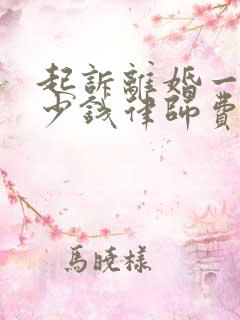 起訴離婚一
少錢律師費
馬曉樣